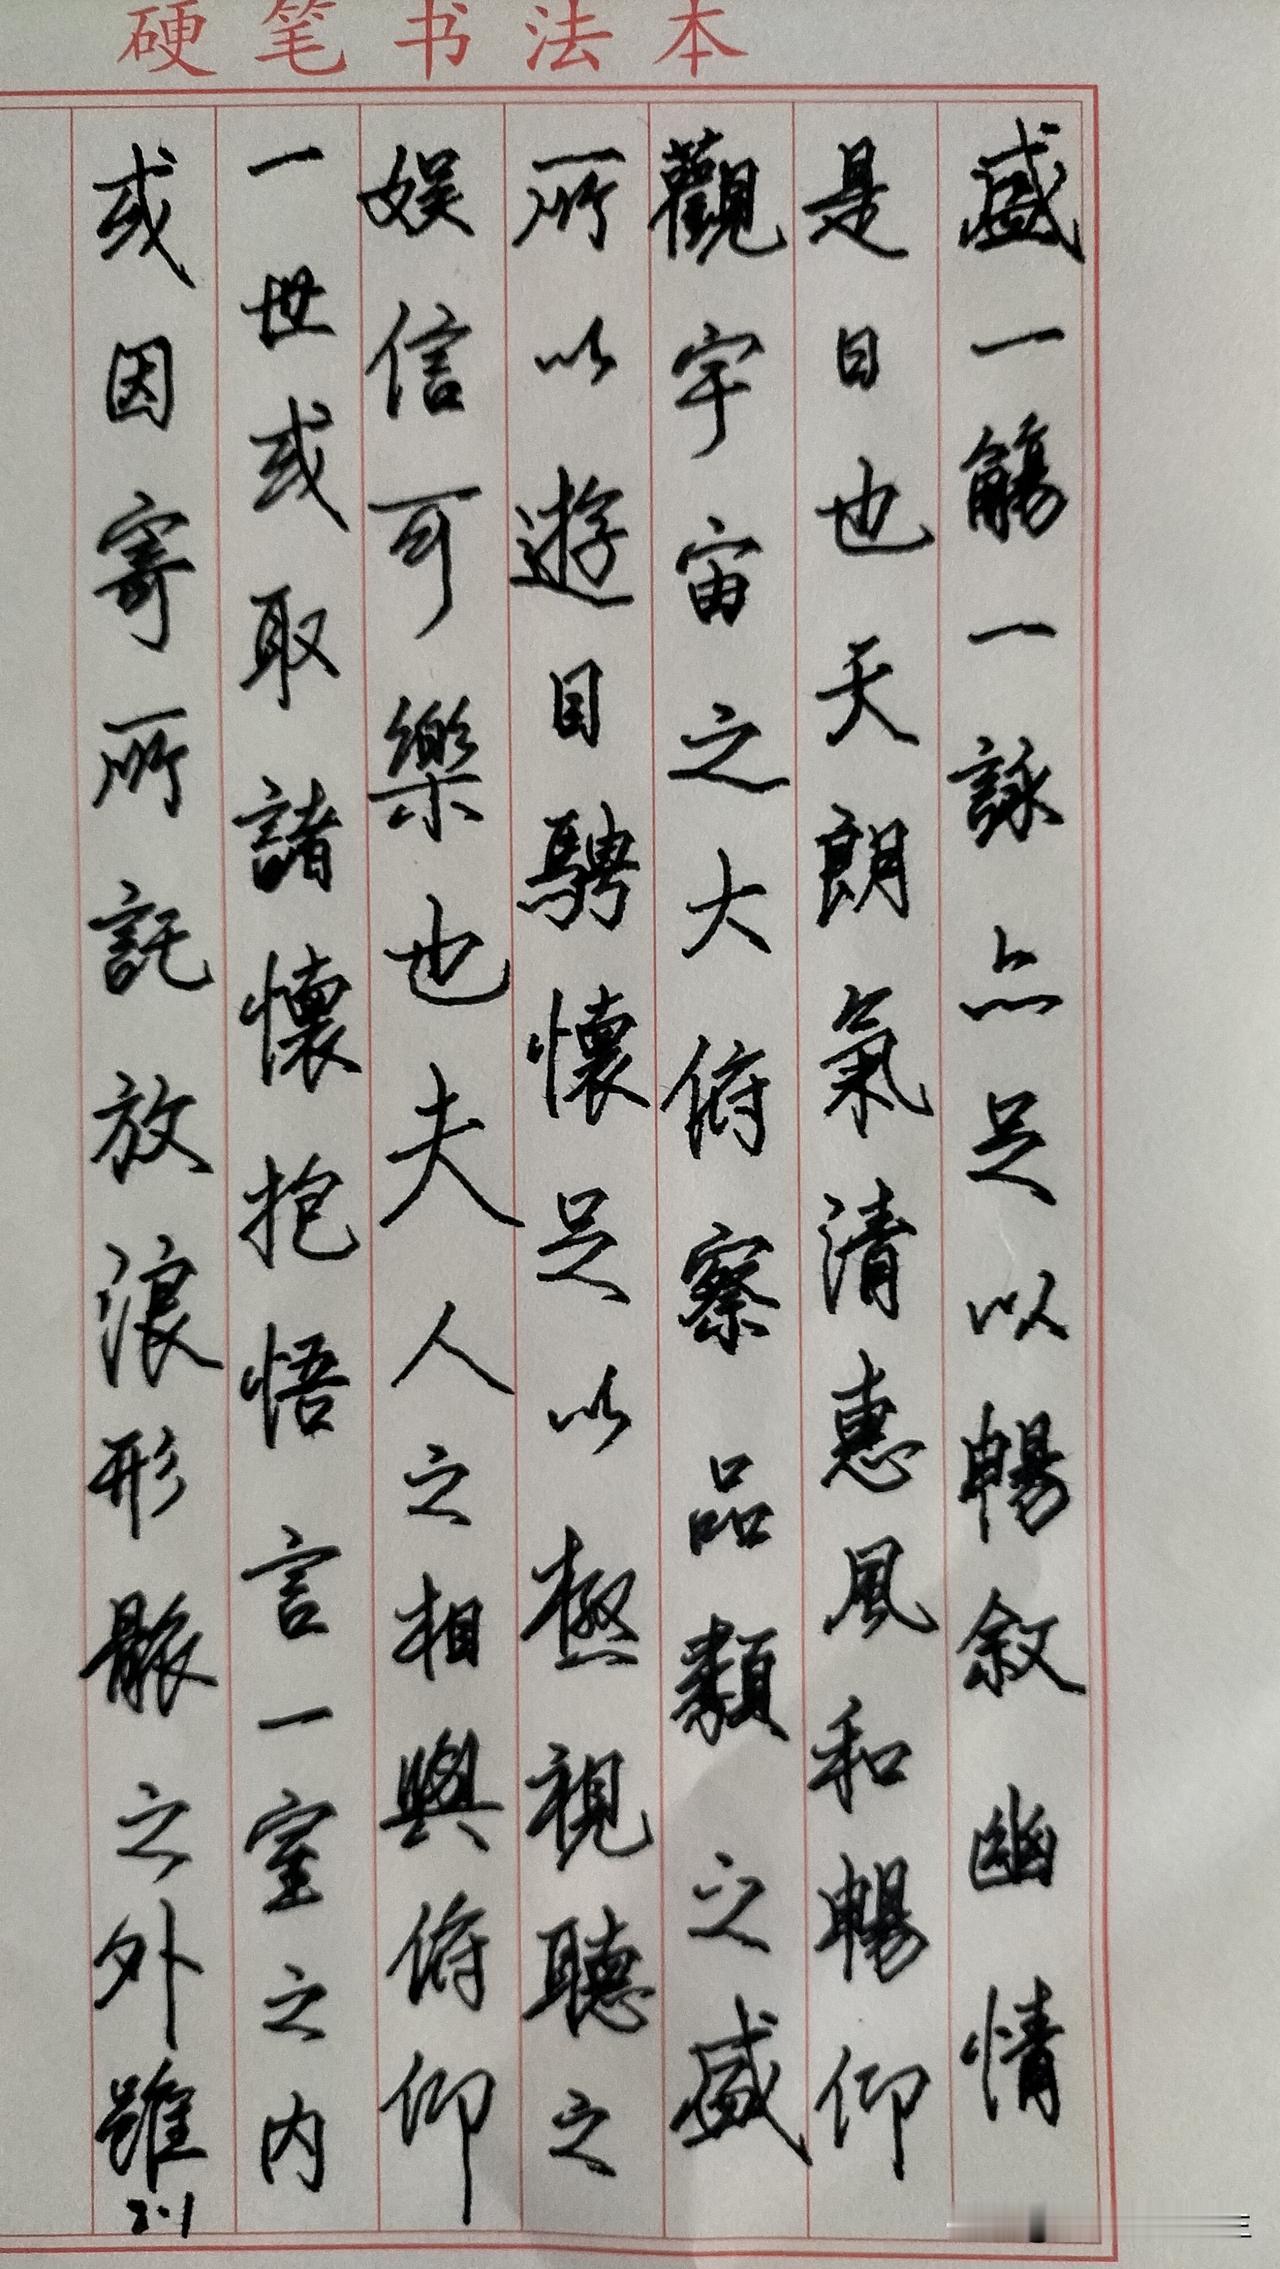 硬笔书法本
盛一觴一詠亦足以暢敘幽情
是日也天朗氣清惠風和暢仰
觀宇宙之大俯察品類之盛
所以遊目騁懷足以極視聽之
娱信可樂也夫人之相與俯仰
一世或取諸懷抱悟言一室之内
或因寄所託放浪形骸之外雖
2·1